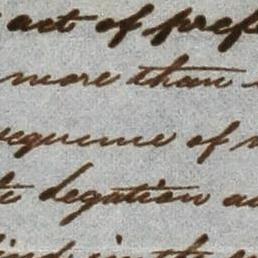 act of pref
more than
sequence of
legation a
in the